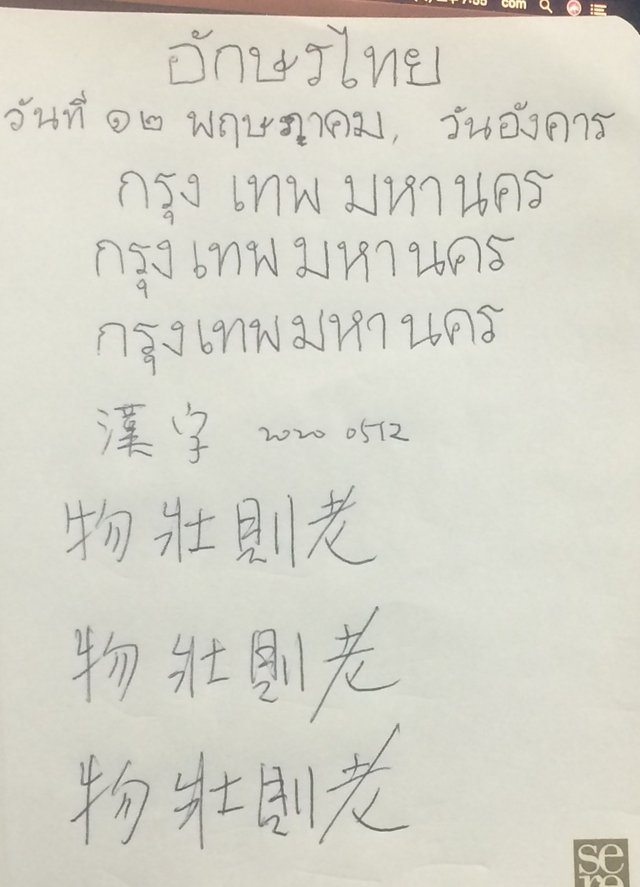 com
อักษรไทย
วันที่ ๑๒ พฤษภาคม, วันอังคาร
กรุง เทพ มหา นคร
กรุง เทพ มหา นคร
กรุง เทพ มหา นคร
漢字 2020 0512
物壯則老
物壯則老
物壯則老
se
re